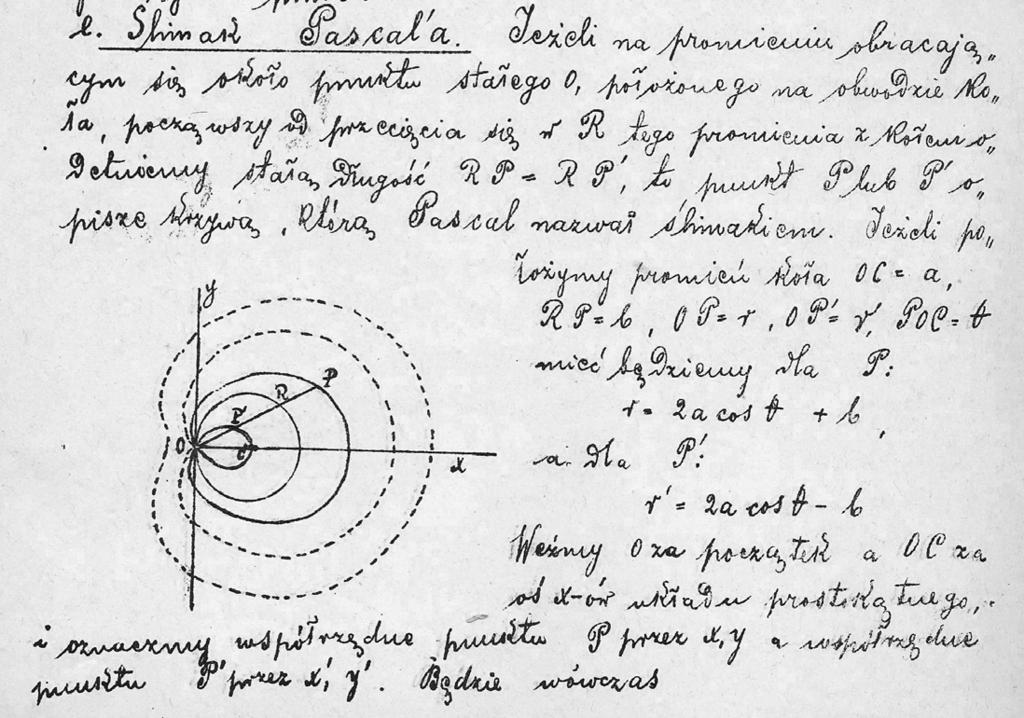 e. Ślimak Pascal'a. Jeżeli na promieniu obracają„
cym się około punktu stałego O, położonego na obwodzie ko„
ła, począwszy od przecięcia się w R tego promienia z kołem o„
detniemy stałą długość RP = RP', to punkt P lub P' o„
pisze krzywą, którą Pascal nazwał ślimakiem. Jeżeli po„
łożymy promień koła OC = a,
RP = b, OP = r, OP' = r', POC = θ
mieć będziemy dla P:
r = 2a cos θ + b,
a dla P':
r' = 2a cos θ - b
Weźmy O za początek a OC za
oś x-ów układu prostokątnego,
i oznaczmy współrzędne punktu P przez x, y a współrzędne
punktu P' przez x', y'. Będzie wówczas
y
P
R
P'
O
C
x